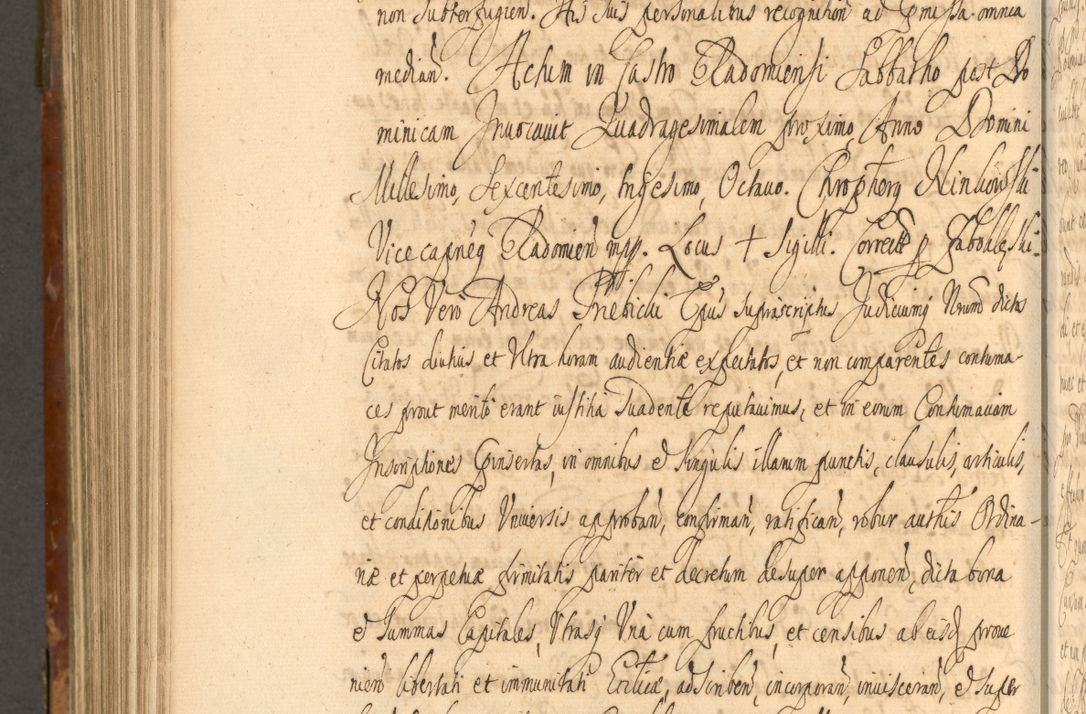 non subterfugien̄. His suis personalibus recognition̄ ad p̄missa omnia
median̄. Actum in Castro Radomiensi Sabbatho post Do
minicam Invocavit Quadragesimalem proximo, Anno Domini
Millesimo, Sexcentesimo, Octavo.
Vice Radomien̄ mpp. Locus + Sigilli. Correct̄ p
Nos Vero Andreas Trzebicki Ep̄us Suprascriptus Nrūm dictos
Citatos diutius et Ultra horam audientiæ expectatos, et non comparentes contuma-
ces prout merito erant iustitia Suadente reputavimus, et in eorum Contumaciam
Inscriptiones p̄insertas, in omnibus & singulis illarum punctis, clausulis, articulis,
et conditionibus Universis approban̄, confirman̄, ratifican̄, robur auth̄is Ordina-
riæ et perpetuæ firmitatis pariter et decretum desuper apponen̄, dicta bona
& Summas Capitales, Utrasq Una cum fructibus, et censibus ab eisd prove
nien̄ libertati et immunitati Eccl̄icæ, adscriben̄, incorporan̄, invisceran̄, & super